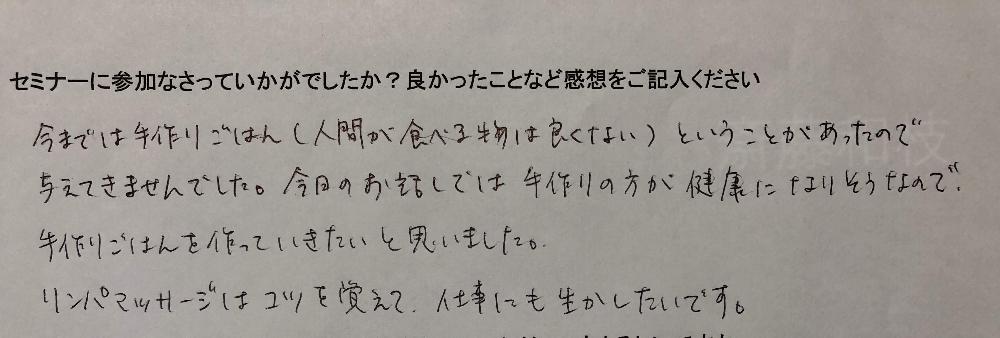 セミナーに参加なさっていかがでしたか？良かったことなど感想をご記入ください
今までは手作りごはん(人間が食べる物は良くない)ということがあったので
与えてきませんでした。今日のお話しでは手作りの方が健康になりそうなので、
手作りごはんを作っていきたいと思いました。
リンパマッサージはコツを覚えて、仕事にも生かしたいです。